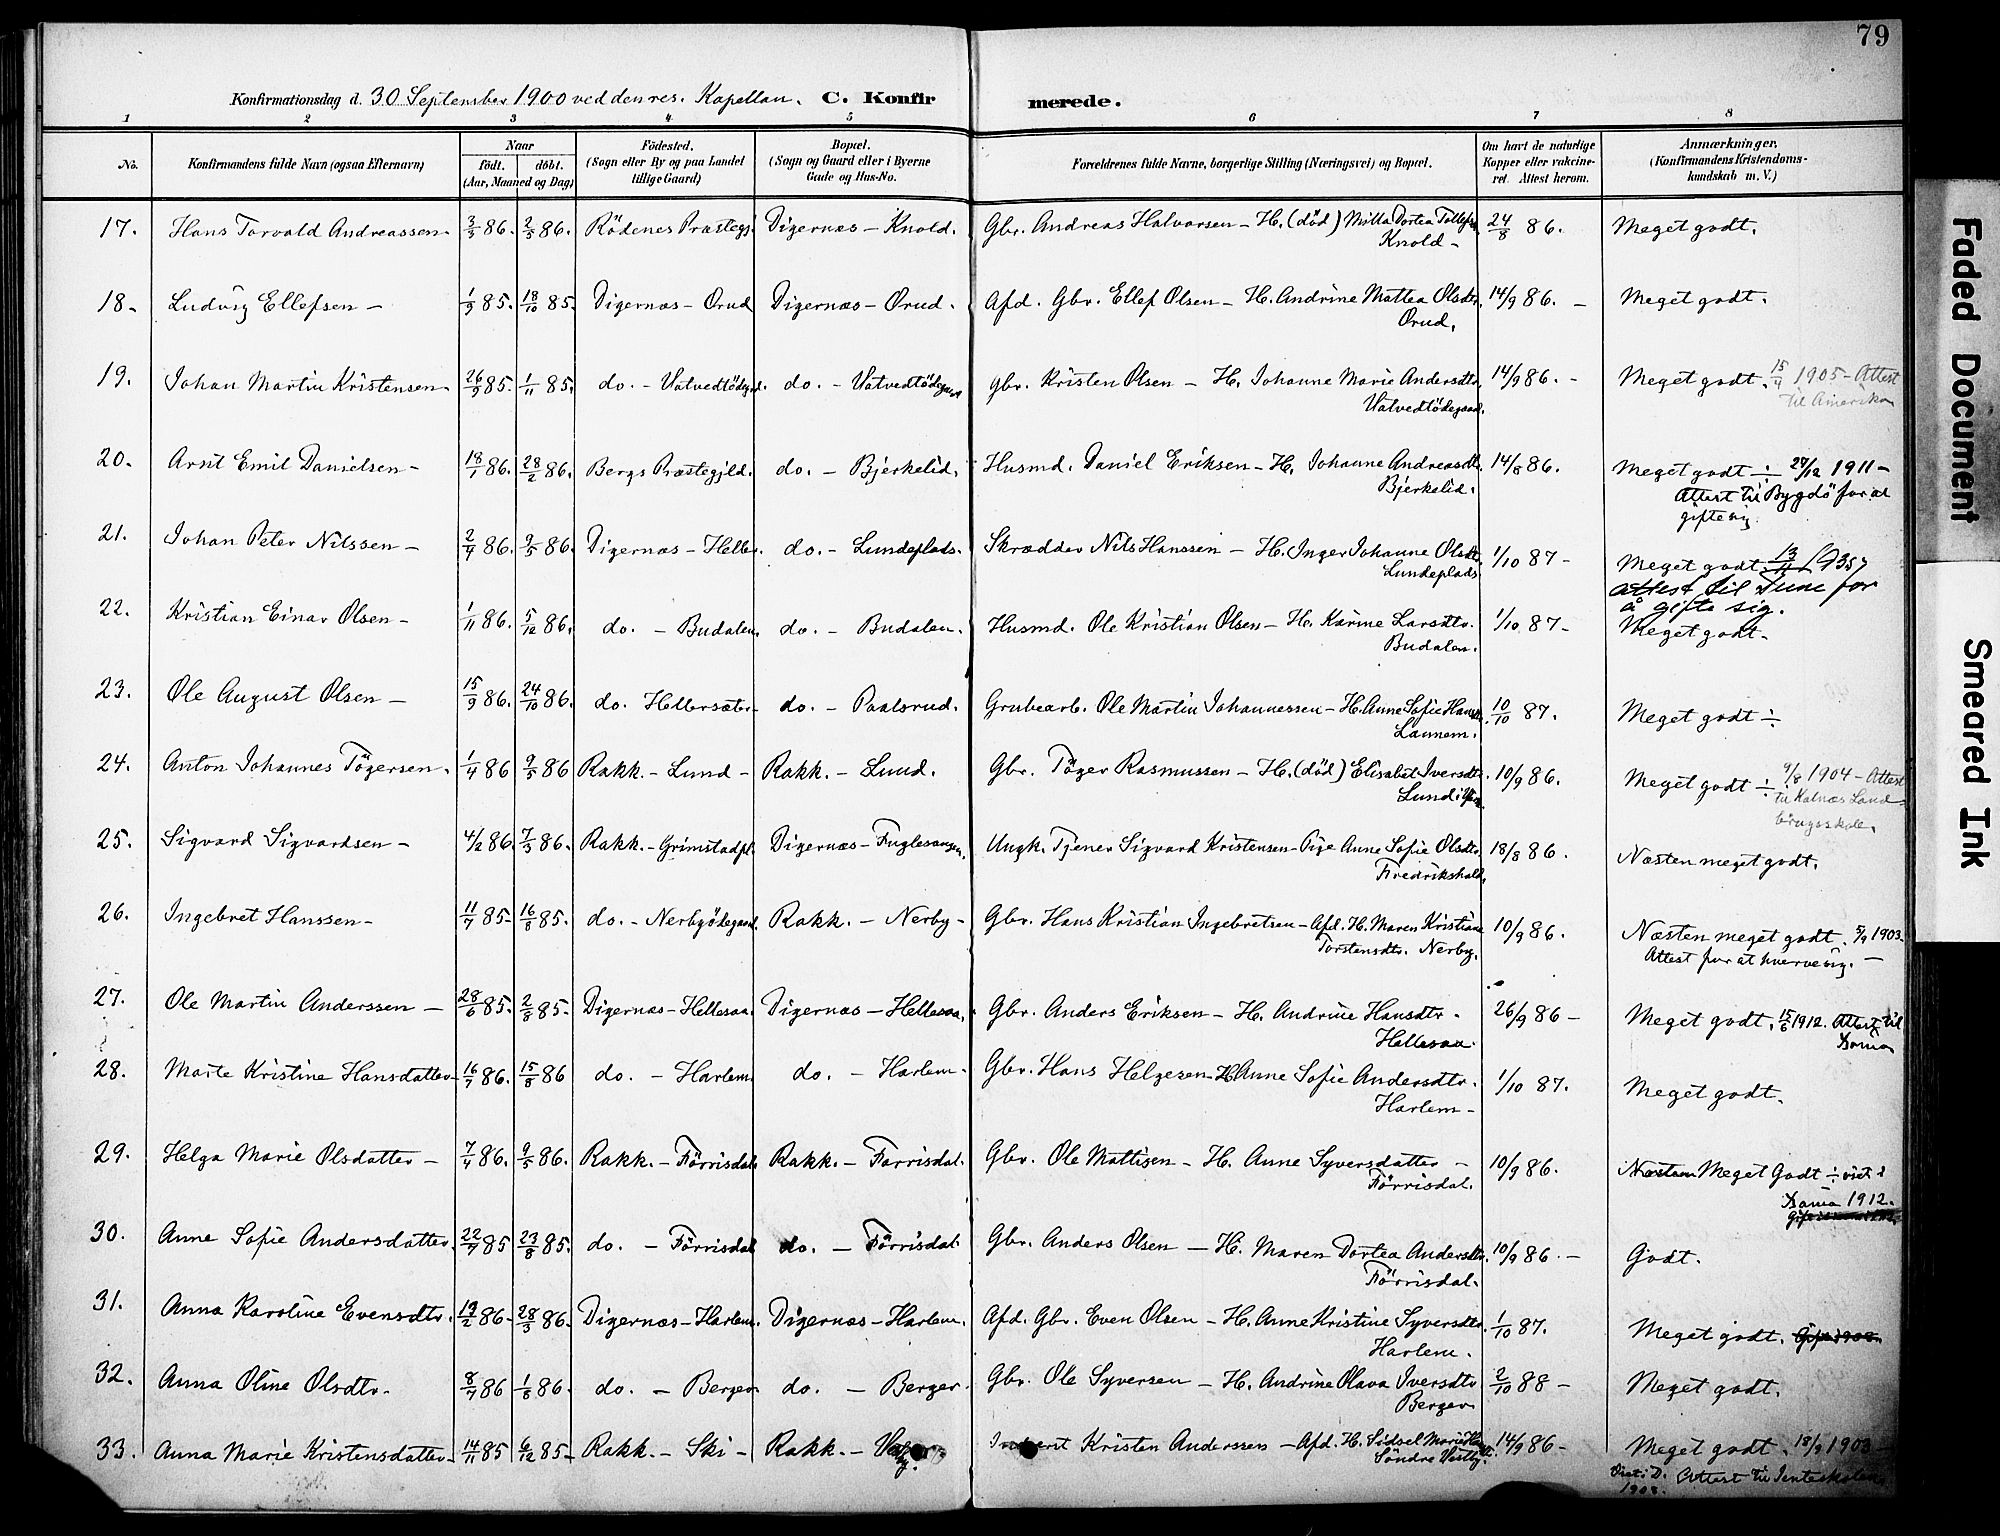 79
Konfirmationsdag d. 30 September 1900 ved den res. Kapellan. C. Konfirmerede.
1 2 3 4 5 6 7 8
No. Konfirmandens fulde Navn (ogsaa Efternavn) Naar født. døbt. (Aar, Maaned og Dag) Fødested. (Sogn eller By og paa Landet tillige Gaard) Bopæl. (Sogn og Gaard eller i Byerne Gade og Hus-No. Forældrenes fulde Navne, borgerlige Stilling (Næringsvei) og Bopæl. Om havt de naturlige Kopper eller vakcineret. Attest herom. Anmærkninger, (Konfirmandens Kristendomskundskab m. V.)
17. Hans Torvald Andreassen - 3/3 86. 2/5 86. Rödenes Præstegj. Digernæs - Knold. Gbr. Andreas Halvorsen - H. (död) Dortea 24/8 86. Meget godt.
Knold -
18. Ludvig Ellefsen - 1/9 85. 18/10 85. Digernæs - Orud Digernæs - Orud. Afd. Gbr. Ellef Olsen - H. Andrine Mattea Olsdtr. 14/9 86. - Meget godt.
Orud.
19. Johan Martin Kristensen - 26/9 85. 1/11 85. do. - Vatvedtödegd. do. - Vatvedtödegaard Gbr. Kristen Olsen - H. Johanne Marie Andersdtr. 14/9 86. - Meget godt. 15/4 1905 - Attest
Vatvedtödegaard. til Amerika
20. Arnt Emil Danielsen - 18/1 86. 28/2 86. Bergs Præstegjld. do. - Bjerkelid. Husmd. Daniel Eriksen - H. Johanne Andreasdtr. 14/8 86. Meget godt ÷ 27/12 1911 -
Bjerkelid. Attest til Bygdö for at
gifte sig.
21. Johan Peter Nilssen - 2/4 86. 9/5 86. Digernæs - Heller. do. - Lundeplads. Skrædder Nils Hanssen - H. Inger Johanne Olsdtr. 1/10 87 - Meget godt. 13/11 1935
Lundeplads attest til Tune for
å gifte sig.
22. Kristian Einar Olsen - 1/11 86. 5/12 86. do. - Budalen. do. - Budalen. Husmd. Ole Kristian Olsen - H. Karine Larsdtr. 1/10 87 - Meget godt.
Budalen.
23. Ole August Olsen - 15/9 86. 24/10 86. do. Hellersæter do. - Paalsrud. Grubearb. Ole Martin Johannessen - H. Anne Sofie 10/10 87. Meget godt ÷
24. Anton Johannes Tögersen. 1/4 86 9/5 86 Rakk. - Lund - Rakk. - Lund. Gbr. Töger Rasmussen - H. (död) Elisabet Iversdtr. 10/9 86. Meget godt ÷ 9/8 1904 - Attest
Lund til Kalnæs Land-
brugsskole.
25. Sigvard Sigvardsen - 4/2 86. 7/3 86. Rakk. - Grimstadpl. Digernæs - Fuglesangen. Ungk. Tjener Sigvard Kristensen - Pige Anne Sofie Olsdtr. 18/8 86. Næsten meget godt.
Fredrikshald.
26. Ingebret Hanssen - 11/7 85 - 16/8 85. do. - Nerbyödegaard. Rakk. - Nerby - Gbr. Hans Kristian Ingebretsen - Afd. H. Maren Kristiane 10/9 86. Næsten meget godt. 5/9 1903 -
Torstensdtr. Nerby. Attest for at hverve sig. -
27. Ole Martin Anderssen - 28/6 85. 2/8 85 - Digernæs - Hellesaa. Digernæs - Hellesaa. Gbr. Anders Eriksen - H. Andrine Hansdtr. 26/9 86 - Meget godt. 15/6 1912. Attest til
Hellesaa. Dania
28. Marte Kristine Hansdatter - 16/7 86. 15/8 86 do. - Harlem do. - Harlem - Gbr. Hans Helgesen - H. Anne Sofie Andersdtr. 1/10 87. Meget godt.
Harlem -
29. Helga Marie Olsdatter - 7/4 86. 9/5 86. Rakk. - Förrisdal. Rakk. - Forrisdal. Gbr. Ole Mattisen - H. Anne Syversdatter - 10/9 86. Næsten Meget Godt ÷ viet i
Förrisdal. Dania 1912.
30. Anne Sofie Andersdatter. 22/7 85 23/8 85. do. - Förrisdal do. - Förrisdal. Gbr. Anders Olsen - H. Maren Dortea Andersdtr. 10/9 86. - Godt.
Förrisdal.
31. Anna Karoline Evensdtr. 19/2 86 - 28/3 86. Digernæs - Harlem. Digernæs - Harlem. Afd. Gbr. Even Olsen - H. Anne Kristine Syversdtr. 1/10 87. Meget godt.
Harlem.
32. Anna Oline Olsdtr. 8/7 86 1/8 86. do. - Berger do. - Berger. Gbr. Ole Syversen - H. Andrine Olava Iversdtr 2/10 88 - Meget godt.
Berger
33. Anna Marie Kristensdatter - 14/11 85 6/12 85 - Rakk. - Ski - Rakk. - Kristen Anderssen - Afd. H. Sidsel Marie 14/9 86 - Meget godt. 18/9 1903
Söndre Vestby. Viet i D. Attest til
1908.
Faded Document
Smeared Ink